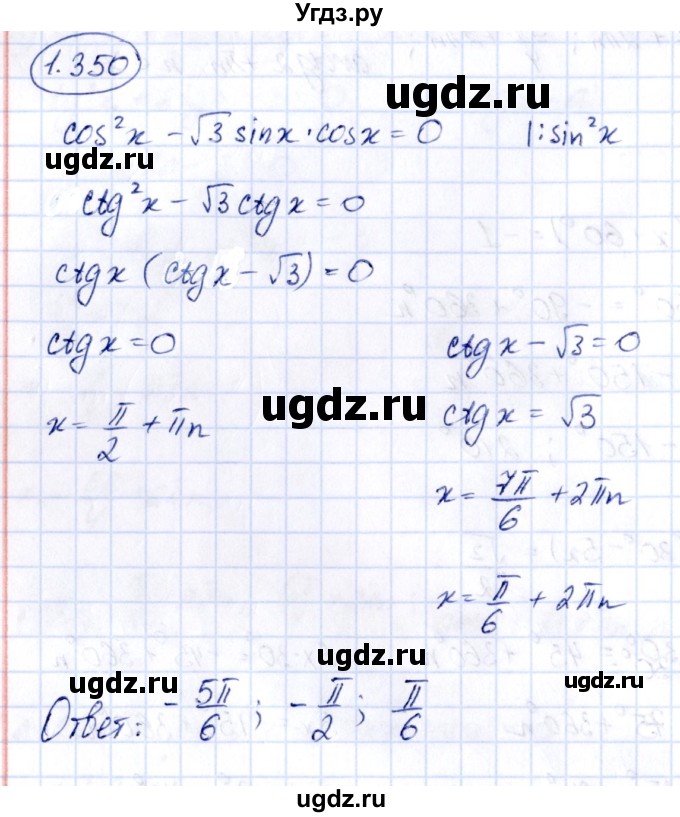 Угдз.ру
1.350
ugdz.ru
cos²x − √3 sinx · cosx = 0 |: sin²x
ugdz.ru
ctg²x − √3 ctgx = 0
ugdz.ru
ctgx (ctgx − √3) = 0
ctgx = 0 ctgx − √3 = 0
ugdz.ru
x = π/2 + πn ctgx = √3
x = 7π/6 + 2πn
x = π/6 + 2πn
ugdz.ru ugdz.ru
Ответ: − 5π/6 ; − π/2 ; π/6
ugdz.ru